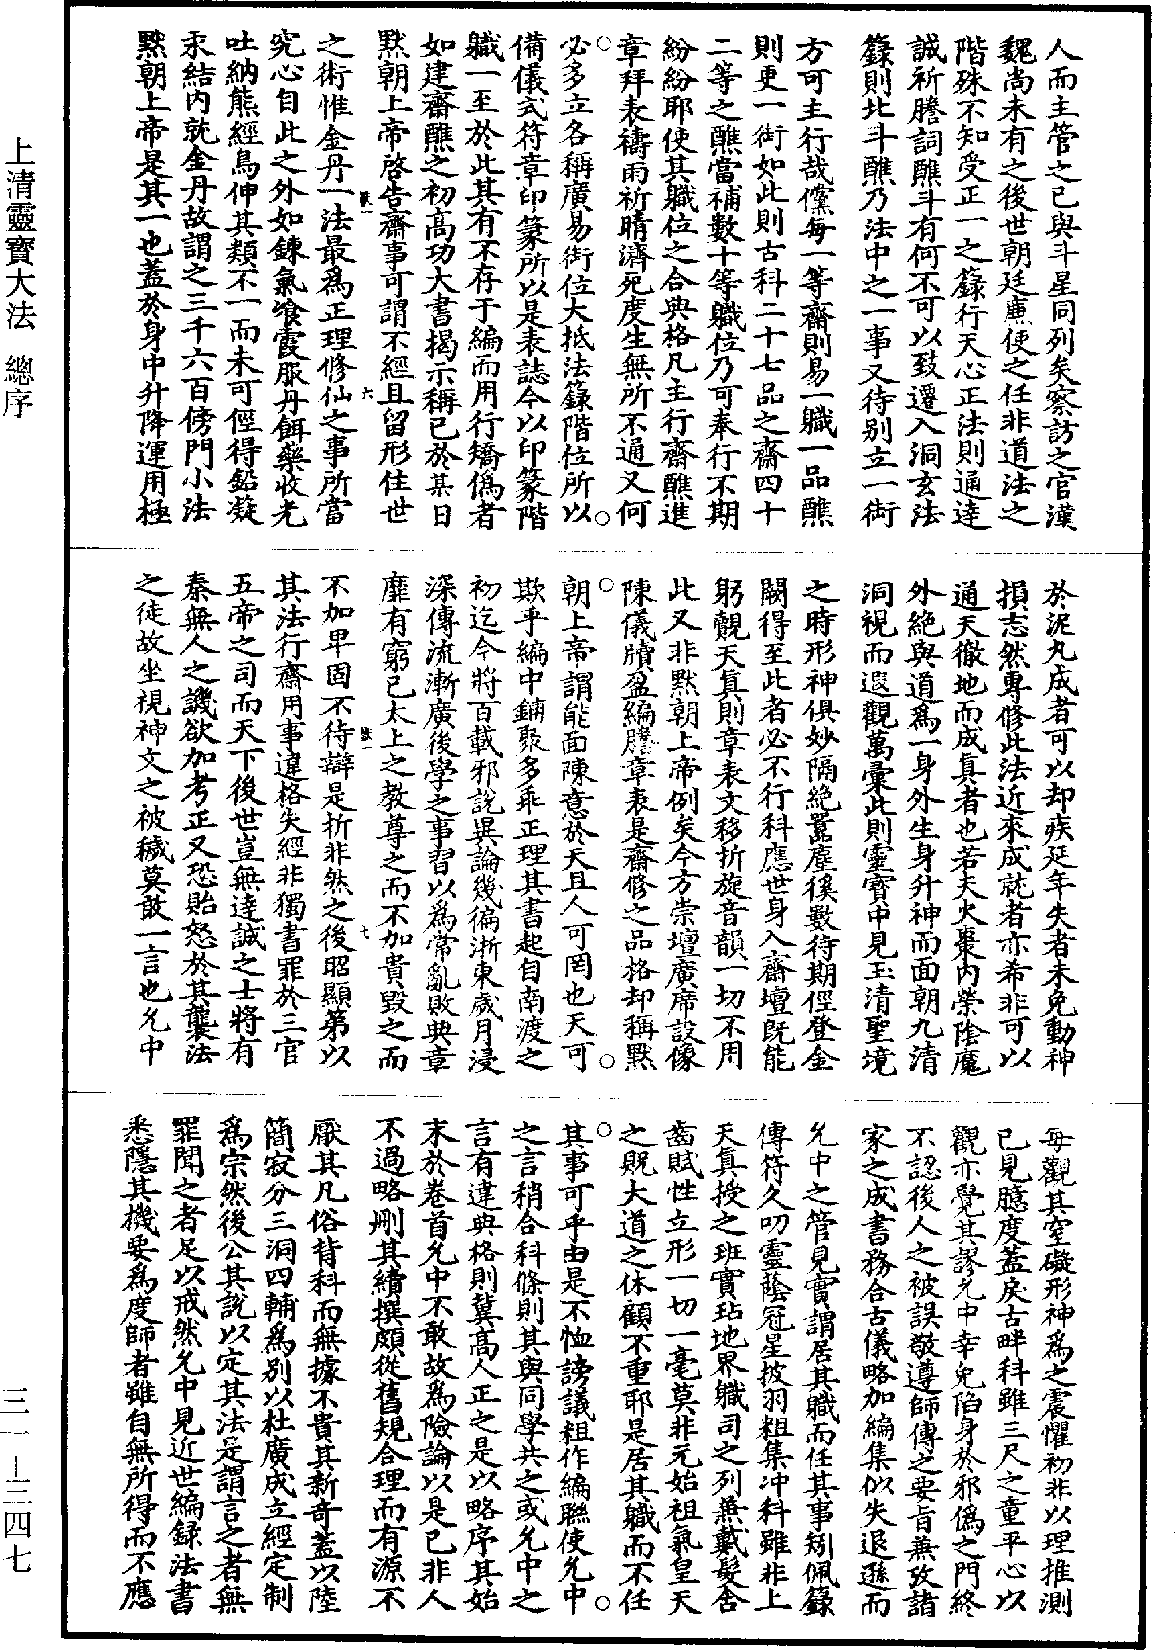 人而主管之已與斗星同列矣察訪之官漢
魏尚未有之後世朝廷廉使之任非道法之
階殊不知受正一之籙行天心正法則通達
誠祈謄詞醮斗有何不可以致遷入洞玄法
籙則北斗醮乃法中之一事又待别立一銜
方可主行哉儻每一等齋則易一職一品醮
則更一銜如此則古科二十七品之齋四十
二等之醮當補數十等職位乃可奉行不期
紛紛耶使其職位之合典格凡主行齋醮進
章拜表禱雨祈晴濟死度生無所不通又何
必多立各稱廣易銜位大抵法籙階位所以
備儀式符章印篆所以是表誌今以印篆階
職一至於此其有不存于編而用行矯僞者
如建齋醮之初高功大書揭示稱已於某日
黙朝上帝啓告齋事可謂不經且留形住世
之術惟金丹一法最爲正理修仙之事所當
究心自此之外如鍊氣飡霞服丹餌藥收光
吐納熊經鳥伸其類不一而未可徑得鉛凝
汞結内就金丹故謂之三千六百傍門小法
黙朝上帝是其一也蓋於身中升降運用極
於泥丸成者可以却疾延年失者未免動神
損志然專修此法近來成就者亦希非可以
通天徹地而成真者也若天火棗内榮陰魔
外絶與道爲一身外生身升神而面朝九清
洞視而遐觀萬彙此則靈寳中見玉清聖境
之時形神俱妙隔絶囂塵徯數待期徑登金
闕得至此者必不行科應世身入齋壇旣能
躬覿天真則章表文移折旋音韻一切不用
此又非黙朝上帝例矣今方崇壇廣席設像
陳儀牘盈編牘章表是齋修之品格却稱黙
朝上帝謂能面陳意於天且人可罔也天可
欺乎編中鋪聚多乖正理其書起自南渡之
初迄今將百載邪說異論幾徧浙東歲月浸
深傳流漸廣後學之事習以爲常亂敗典章
靡有窮已太上之教尊之而不加貴毀之而
不加卑固不待辯是折非然之後昭顯第以
其法行齋用事違格失經非獨書罪於三官
五帝之司而天下後世豈無達誠之士將有
秦無人之譏欲加考正又恐貽怒於其襲法
之徒故坐視神文之被穢莫敢一言也允中
每觀其窒礙形神爲之震懼初非以理推測
已見臆度蓋戾古畔科雖三尺之童平心以
觀亦覺其謬允中幸免陷身於邪僞之門終
不認後人之被誤敬遵師傳之要旨兼攷諸
家之成書務合古儀略加編集似失退遜而
允中之管見實謂居其職而任其事矧佩籙
傳符久叨靈蔭冠星披羽粗集冲科雖非上
天真授之班實玷地界職司之列兼戴髮含
齒賦性立形一切一毫莫非元始祖氣皇天
之貺大道之休顧不重耶是居其職而不任
其事可乎由是不恤謗議粗作編聯使允中
之言稍合科條則其與同學共之或允中之
言有違典格則冀高人正之是以略序其始
末於卷首允中不敢故爲險論以是已非人
不過略刪其續撰頗從舊規合理而有源不
厭其凡俗背科而無據不貴其新奇蓋以陸
簡寂分三洞四輔爲别以杜廣成立經定制
爲宗然後公其說以定其法是謂言之者無
罪聞之者足以戒然允中見近世編録法書
悉隱其機要爲度師者雖自無所得而不應
上清靈寳大法 總序
三一-三四七